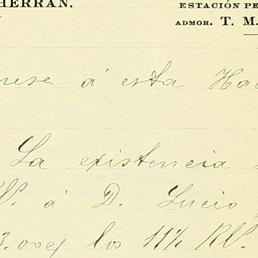 HERRÁN.
ESTACIÓN PE
ADMOR. T. M.
á esta Hac
La existencia
á D. Lucio
los 11½ RV.